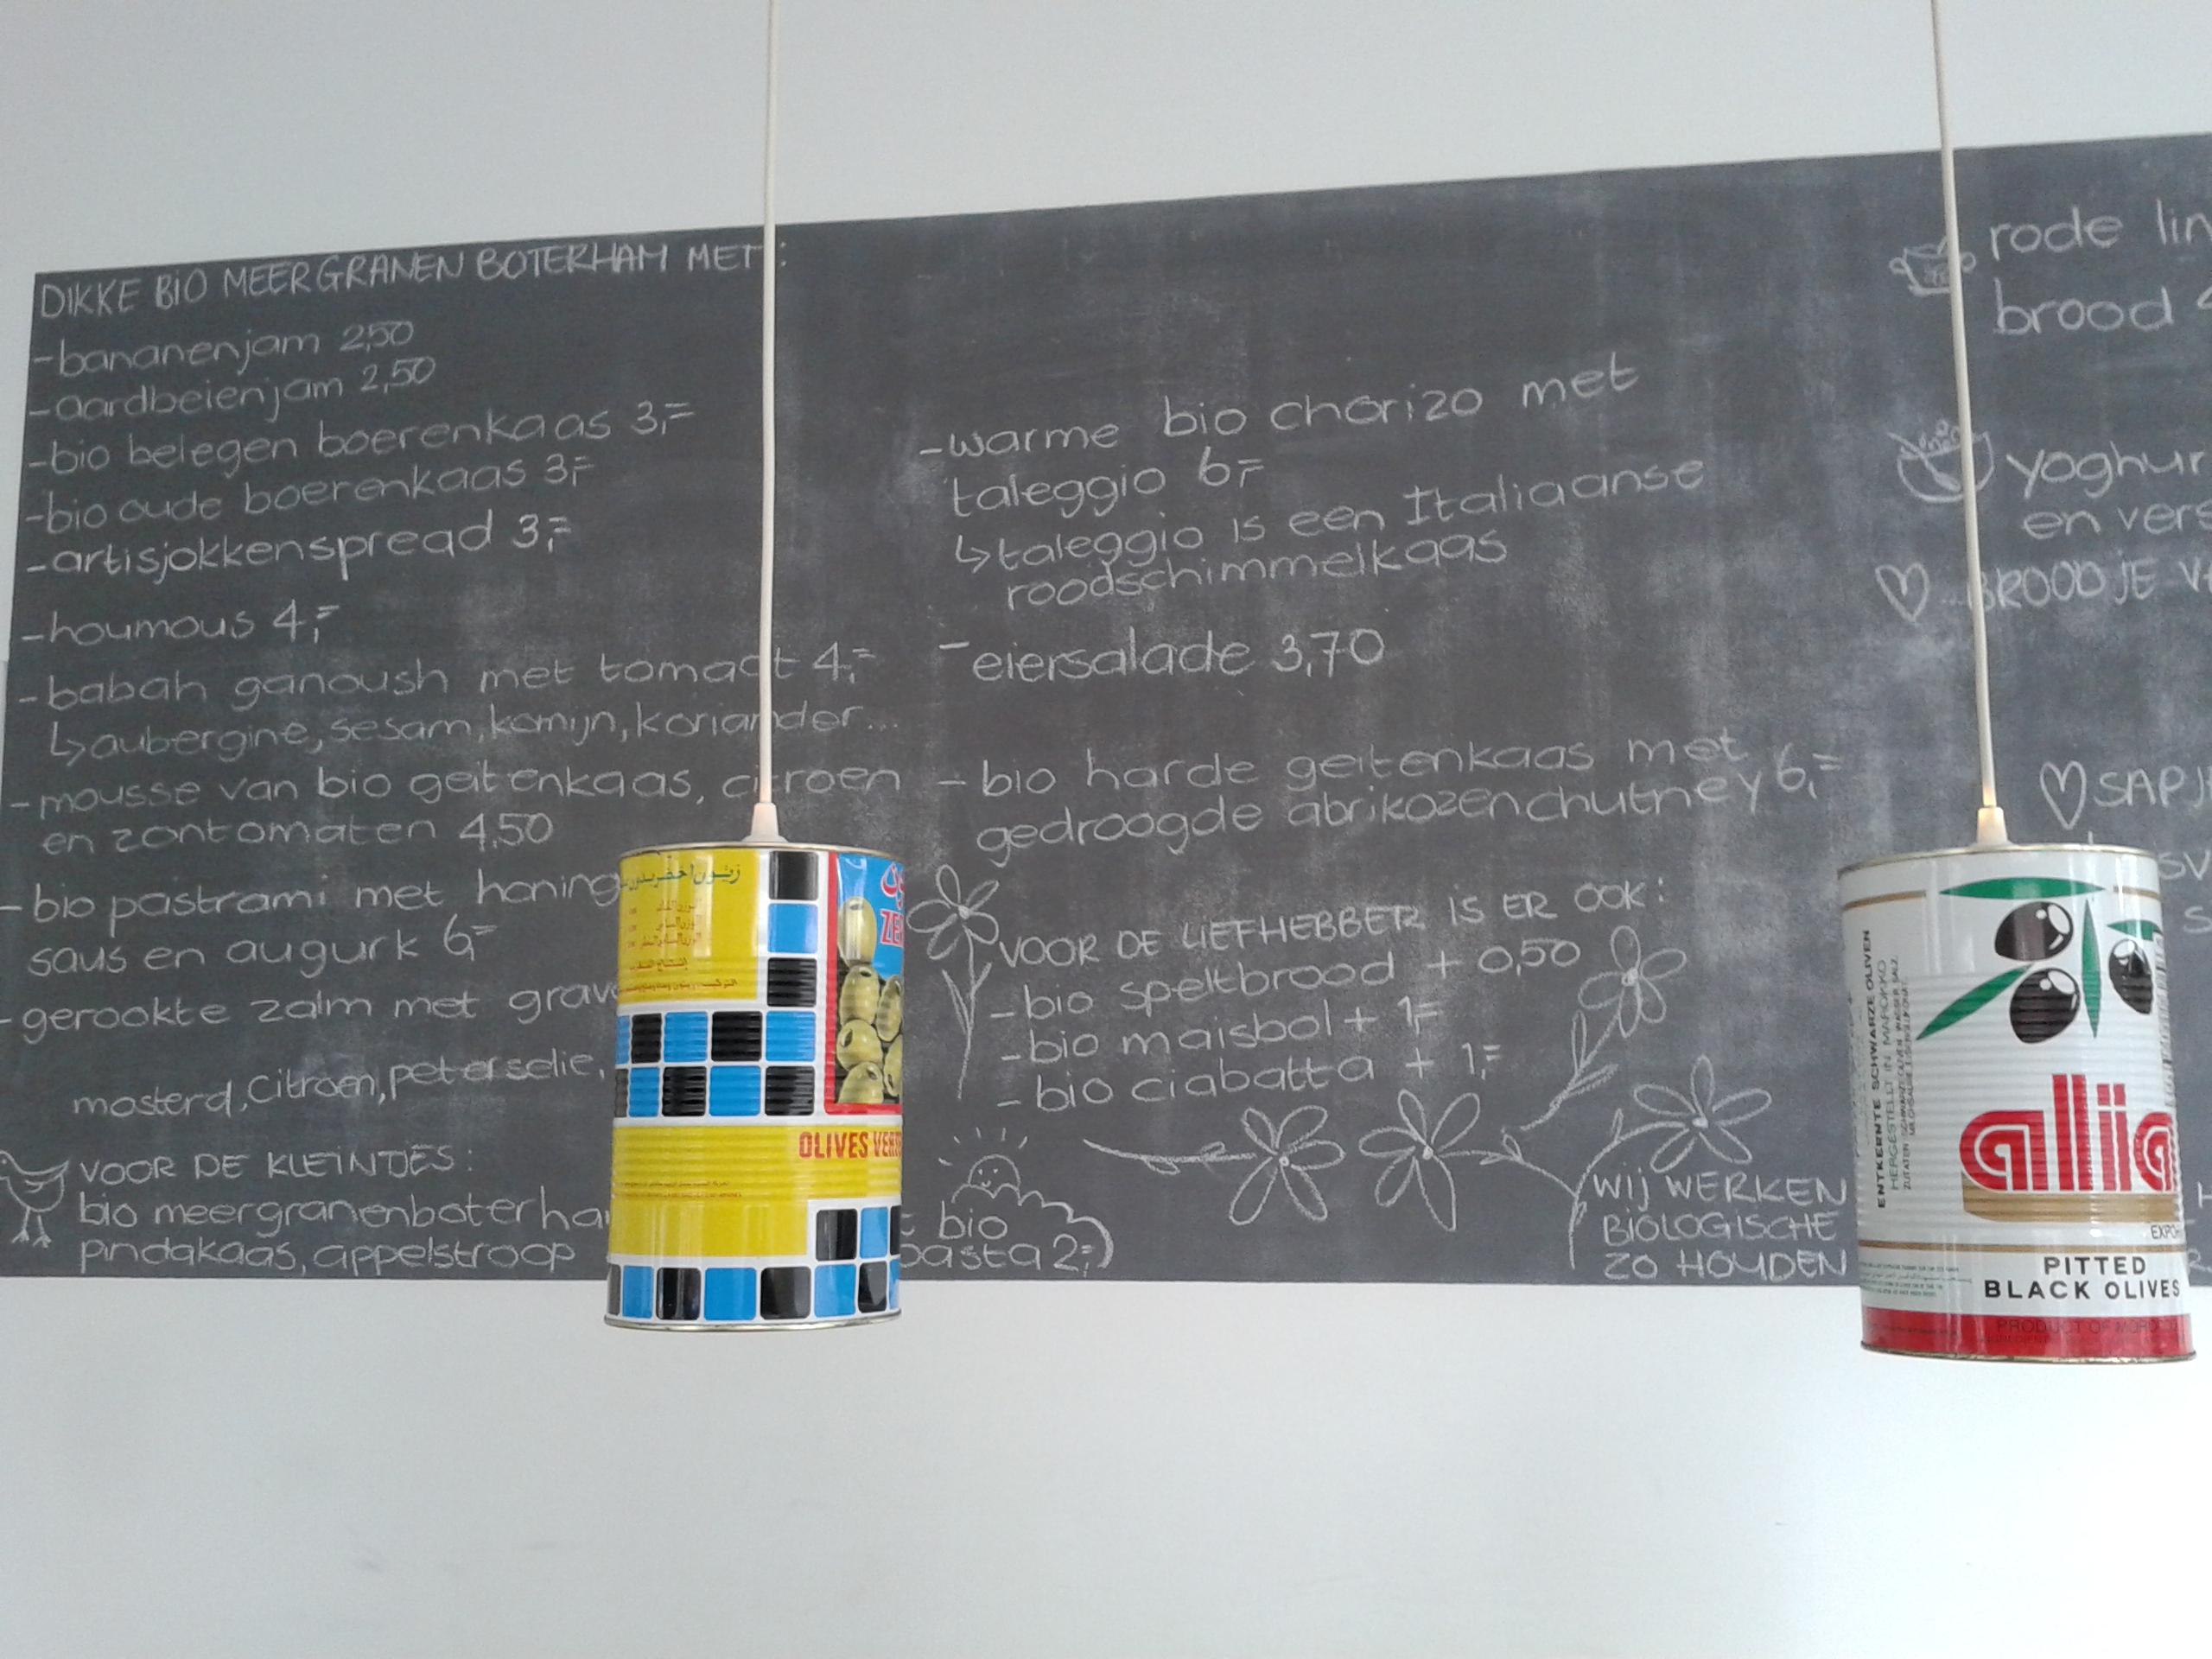 DIKKE BIO MEERGRANEN BOTERHAM MET :
-bananenjam 2,50
-aardbeienjam 2,50
-bio belegen boerenkaas 3,=
-bio oude boerenkaas 3,=
-artisjokkenspread 3,=
-houmous 4,=
-babah ganoush met tomaat 4,=
↳aubergine, sesam, komijn, koriander...
-mousse van bio geitenkaas, citroen
en zontomaten 4,50
-bio pastrami met honing
saus en augurk 6,=
-gerookte zalm met grav
mosterd, citroen, peterselie,
VOOR DE KLEINTJES:
bio meergranenboterha
bio
pindakaas, appelstroop
pasta 2,=
-warme bio chorizo met
taleggio 6,=
↳taleggio is een Italiaanse
roodschimmelkaas
-eiersalade 3,70
-bio harde geitenkaas met
gedroogde abrikozenchutney 6,=
VOOR DE LIEFHEBBER IS ER OOK:
-bio speltbrood + 0,50
-bio maisbol + 1,=
-bio ciabatta + 1,=
WIJ WERKEN
BIOLOGISCHE
ZO HOUDEN
rode lin
brood
yoghur
en vers
BROODJE VA
SAPJ
زيتون أخضر بدون
ZE
OLIVES VER
ENTKERNTE SCHWARZE OLIVEN
HERGESTELLT IN MAROKKO
allia
PITTED
BLACK OLIVES
PRODUCT OF MOROC